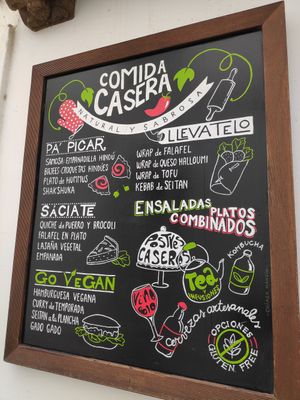 COMIDA
CASERA
NATURAL Y SABROSA
PA' PICAR
SAMOSA-EMPANADILLA HINDÚ
BAJEES-CROQUETAS HINDÚES
PLATO DE HUMMUS
SHAKSHUKA
LLÉVATELO
WRAP DE FALAFEL
WRAP DE QUESO HALLOUMI
WRAP DE TOFU
KEBAB DE SEITAN
SÁCIATE
QUICHE DE PUERRO Y BROCOLI
FALAFEL EN PLATO
LASAÑA VEGETAL
EMPANADA
ENSALADAS
PLATOS
COMBINADOS
GO VEGAN
HAMBURGUESA VEGANA
CURRY DE TEMPORADA
SEITAN A LA PLANCHA
GADO GADO
POSTRES
CASEROS
TEA
INFUSIONES
KOMBUCHA
VERMUT
cervezas artesanales
OPCIONES
GLUTEN FREE